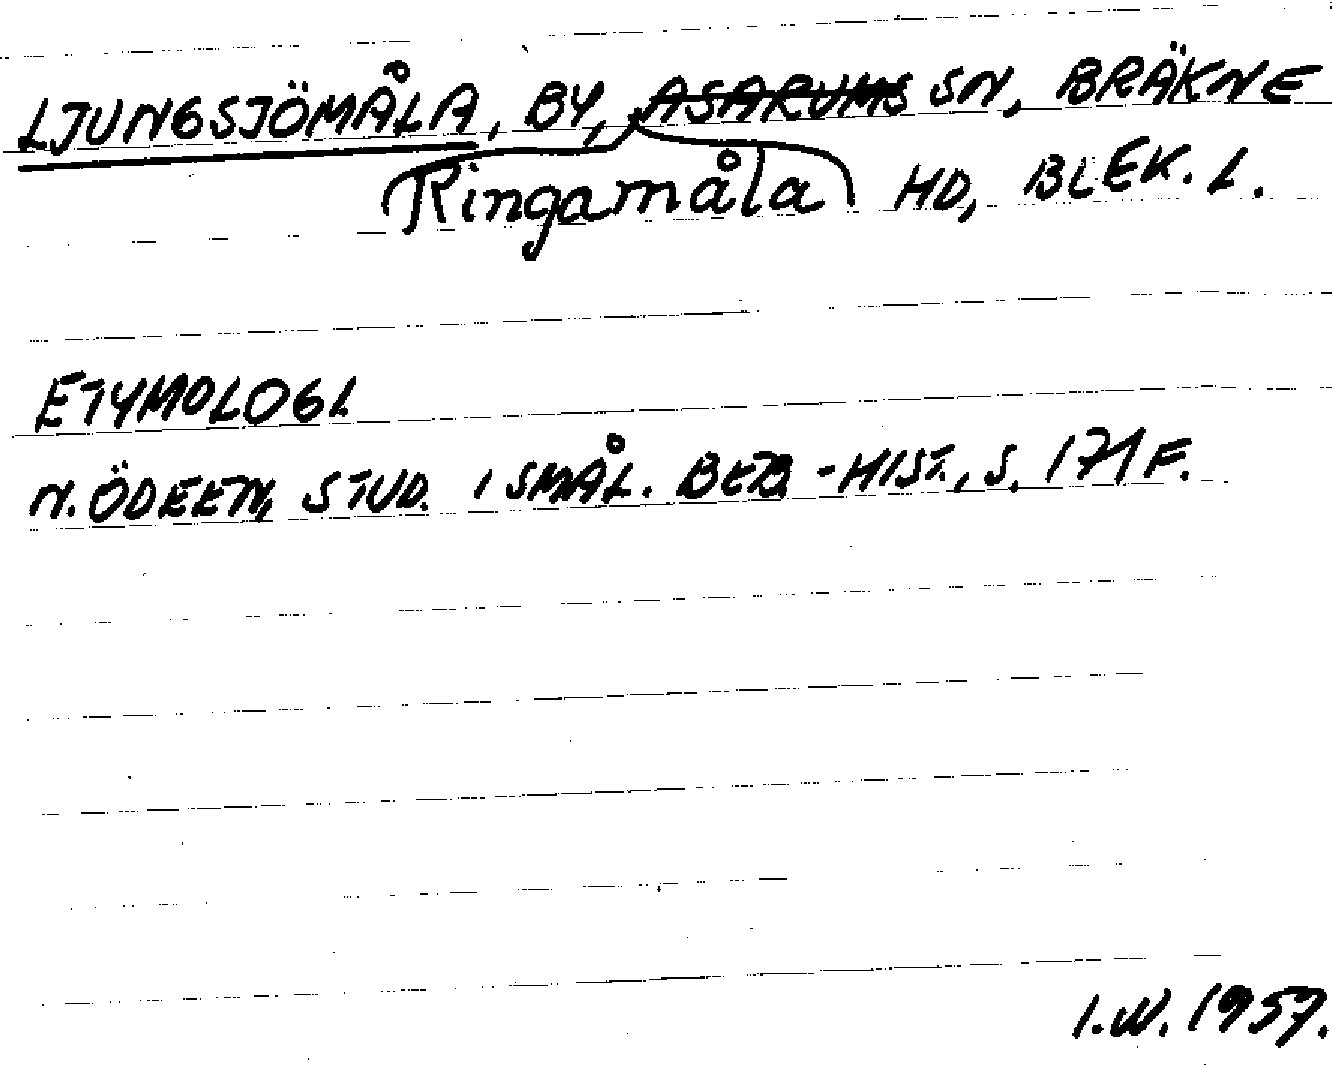 LJUNGSJÖMÅLA, BY, ASARUMS SN, BRÄKNE
Ringamåla HD, BLEK. L.
ETYMOLOGI
N. ÖDEEN, STUD. I SMÅL. BEB.-HIST., S. 171 F.
I.W. 1957.